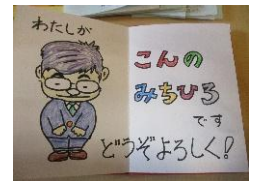 わたしが
こんの
みちひろ
です
どうぞよろしく！